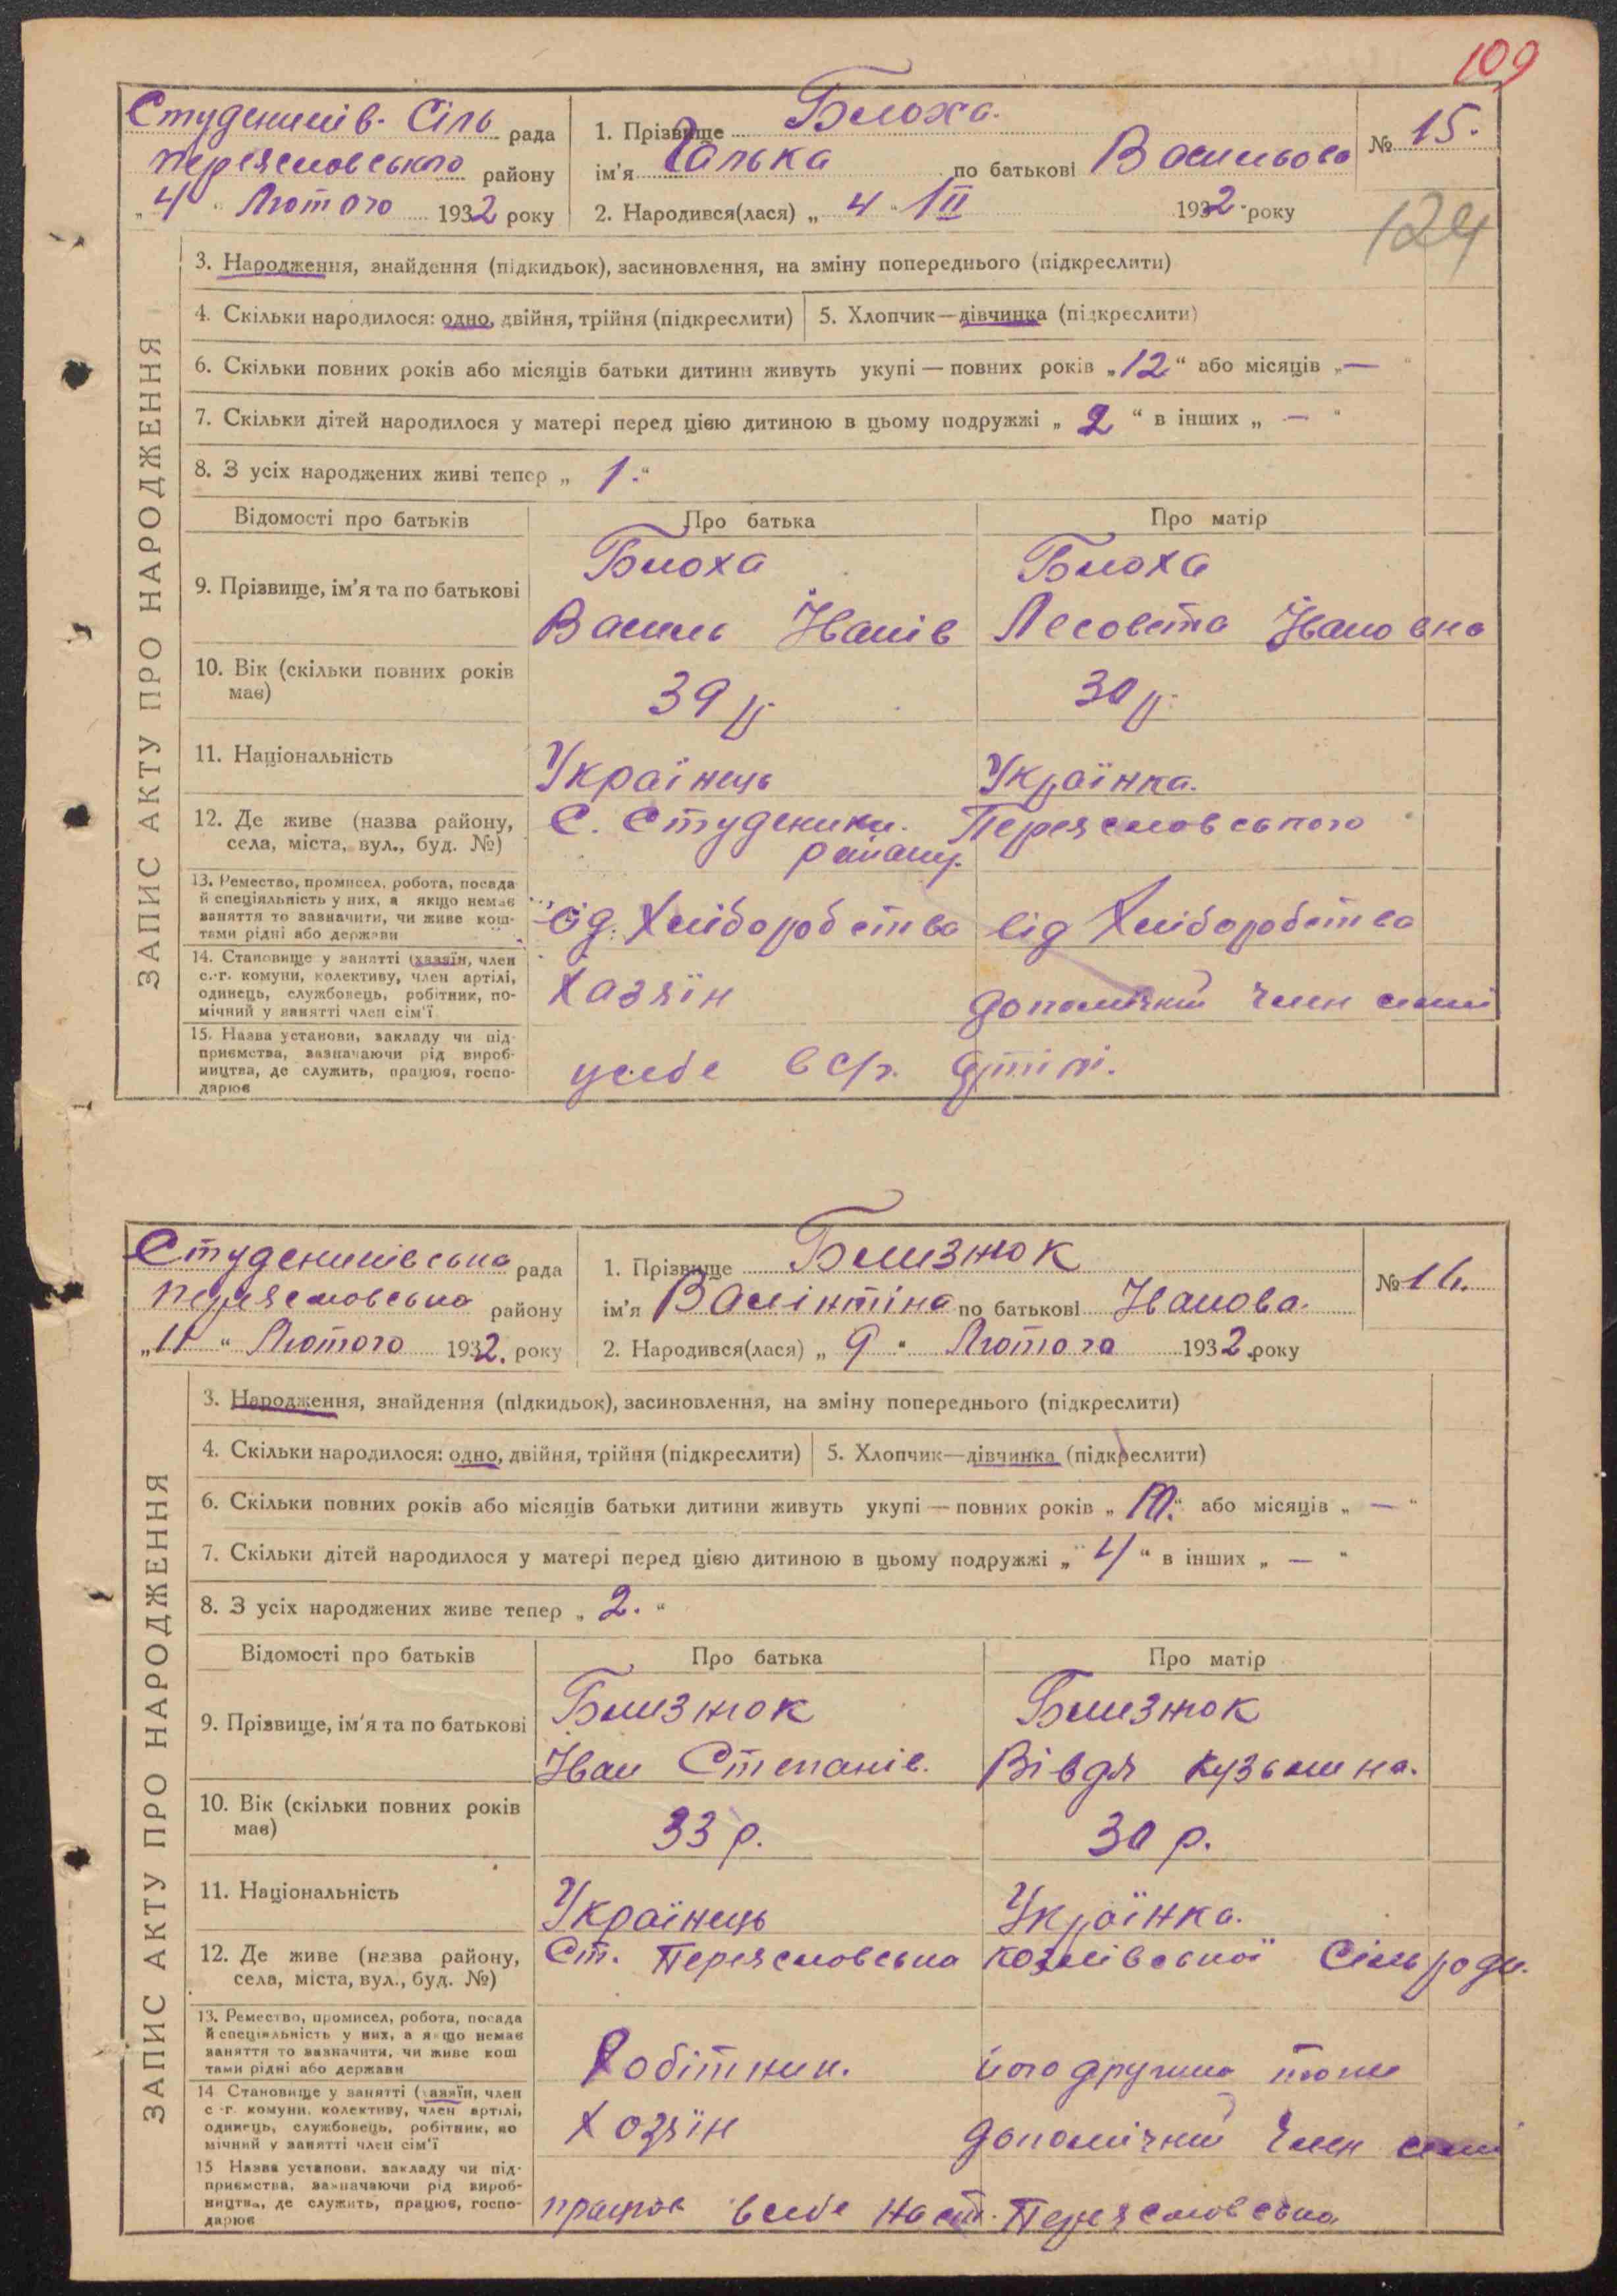 109
Студеників. Сіль рада
Переяславського району
„4“ Лютого 1932 року
1. Прізвище Блоха.
ім'я Галька по батькові Васильова
№ 15.
2. Народився(лася) „4“ 1932 року
124
ЗАПИС АКТУ ПРО НАРОДЖЕННЯ
3. Народження, знайдення (підкидьок), засиновлення, на зміну попереднього (підкреслити)
4. Скільки народилося: одно, двійня, трійня (підкреслити)
5. Хлопчик—дівчинка (підкреслити)
6. Скільки повних років або місяців батьки дитини живуть укупі — повних років „12“ або місяців „—“
7. Скільки дітей народилося у матері перед цією дитиною в цьому подружжі „2“ в інших „—“
8. З усіх народжених живі тепер „1.“
Відомості про батьків Про батька Про матір
9. Прізвище, ім'я та по батькові
Блоха Блоха
Василь Іванів Лесовета Івановна
10. Вік (скільки повних років
має)
39 р. 30 р.
11. Національність
Українець Українка.
12. Де живе (назва району,
села, міста, вул., буд. №)
С. Студеники. Переяславського
району.
13. Ремество, промисел, робота, посада
й спеціяльність у них, а якщо немає
заняття то зазначити, чи живе кош-
тами рідні або держави
від. Хліборобства від Хліборобства
14. Становище у занятті (хазяїн, член
с.-г. комуни, колективу, член артілі,
одинець, службовець, робітник, по-
мічний у занятті член сім'ї
Хазяїн допомічний член сімї
15. Назва установи, закладу чи під-
приємства, зазначаючи рід вироб-
ництва, де служить, працює, госпо-
дарює
у себе в с/г. Артілі.
Студениківська рада
Переяславська району
„11“ Лютого 1932. року
1. Прізвище Близнюк
ім'я Валінтіна по батькові Іванова.
№ 16.
2. Народився(лася) „9“ Лютого 1932 року
ЗАПИС АКТУ ПРО НАРОДЖЕННЯ
3. Народження, знайдення (підкидьок), засиновлення, на зміну попереднього (підкреслити)
4. Скільки народилося: одно, двійня, трійня (підкреслити)
5. Хлопчик—дівчинка (підкреслити)
6. Скільки повних років або місяців батьки дитини живуть укупі — повних років „10.“ або місяців „—“
7. Скільки дітей народилося у матері перед цією дитиною в цьому подружжі „4“ в інших „—“
8. З усіх народжених живе тепер „2.“
Відомості про батьків Про батька Про матір
9. Прізвище, ім'я та по батькові
Близнюк Близнюк
Іван Степанів. Вівдя Кузьмина.
10. Вік (скільки повних років
має)
33 р. 30 р.
11. Національність
Українець Українка.
12. Де живе (назва району,
села, міста, вул., буд. №)
Ст. Переяславська Козлівської Сільради.
13. Ремество, промисел, робота, посада
й спеціяльність у них, а якщо немає
заняття то зазначити, чи живе кош
тами рідні або держави
Робітник. його дружина
14 Становище у занятті (хазяїн, член
с-г. комуни, колективу, член артілі,
одинець, службовець, робітник, по
мічний у занятті член сім'ї
Хозяїн допомічний член сімї
15 Назва установи, закладу чи під-
приємства, зазначаючи рід вироб-
ництва, де служить, працює, госпо-
дарює
працює в себе на ст. Переяславська